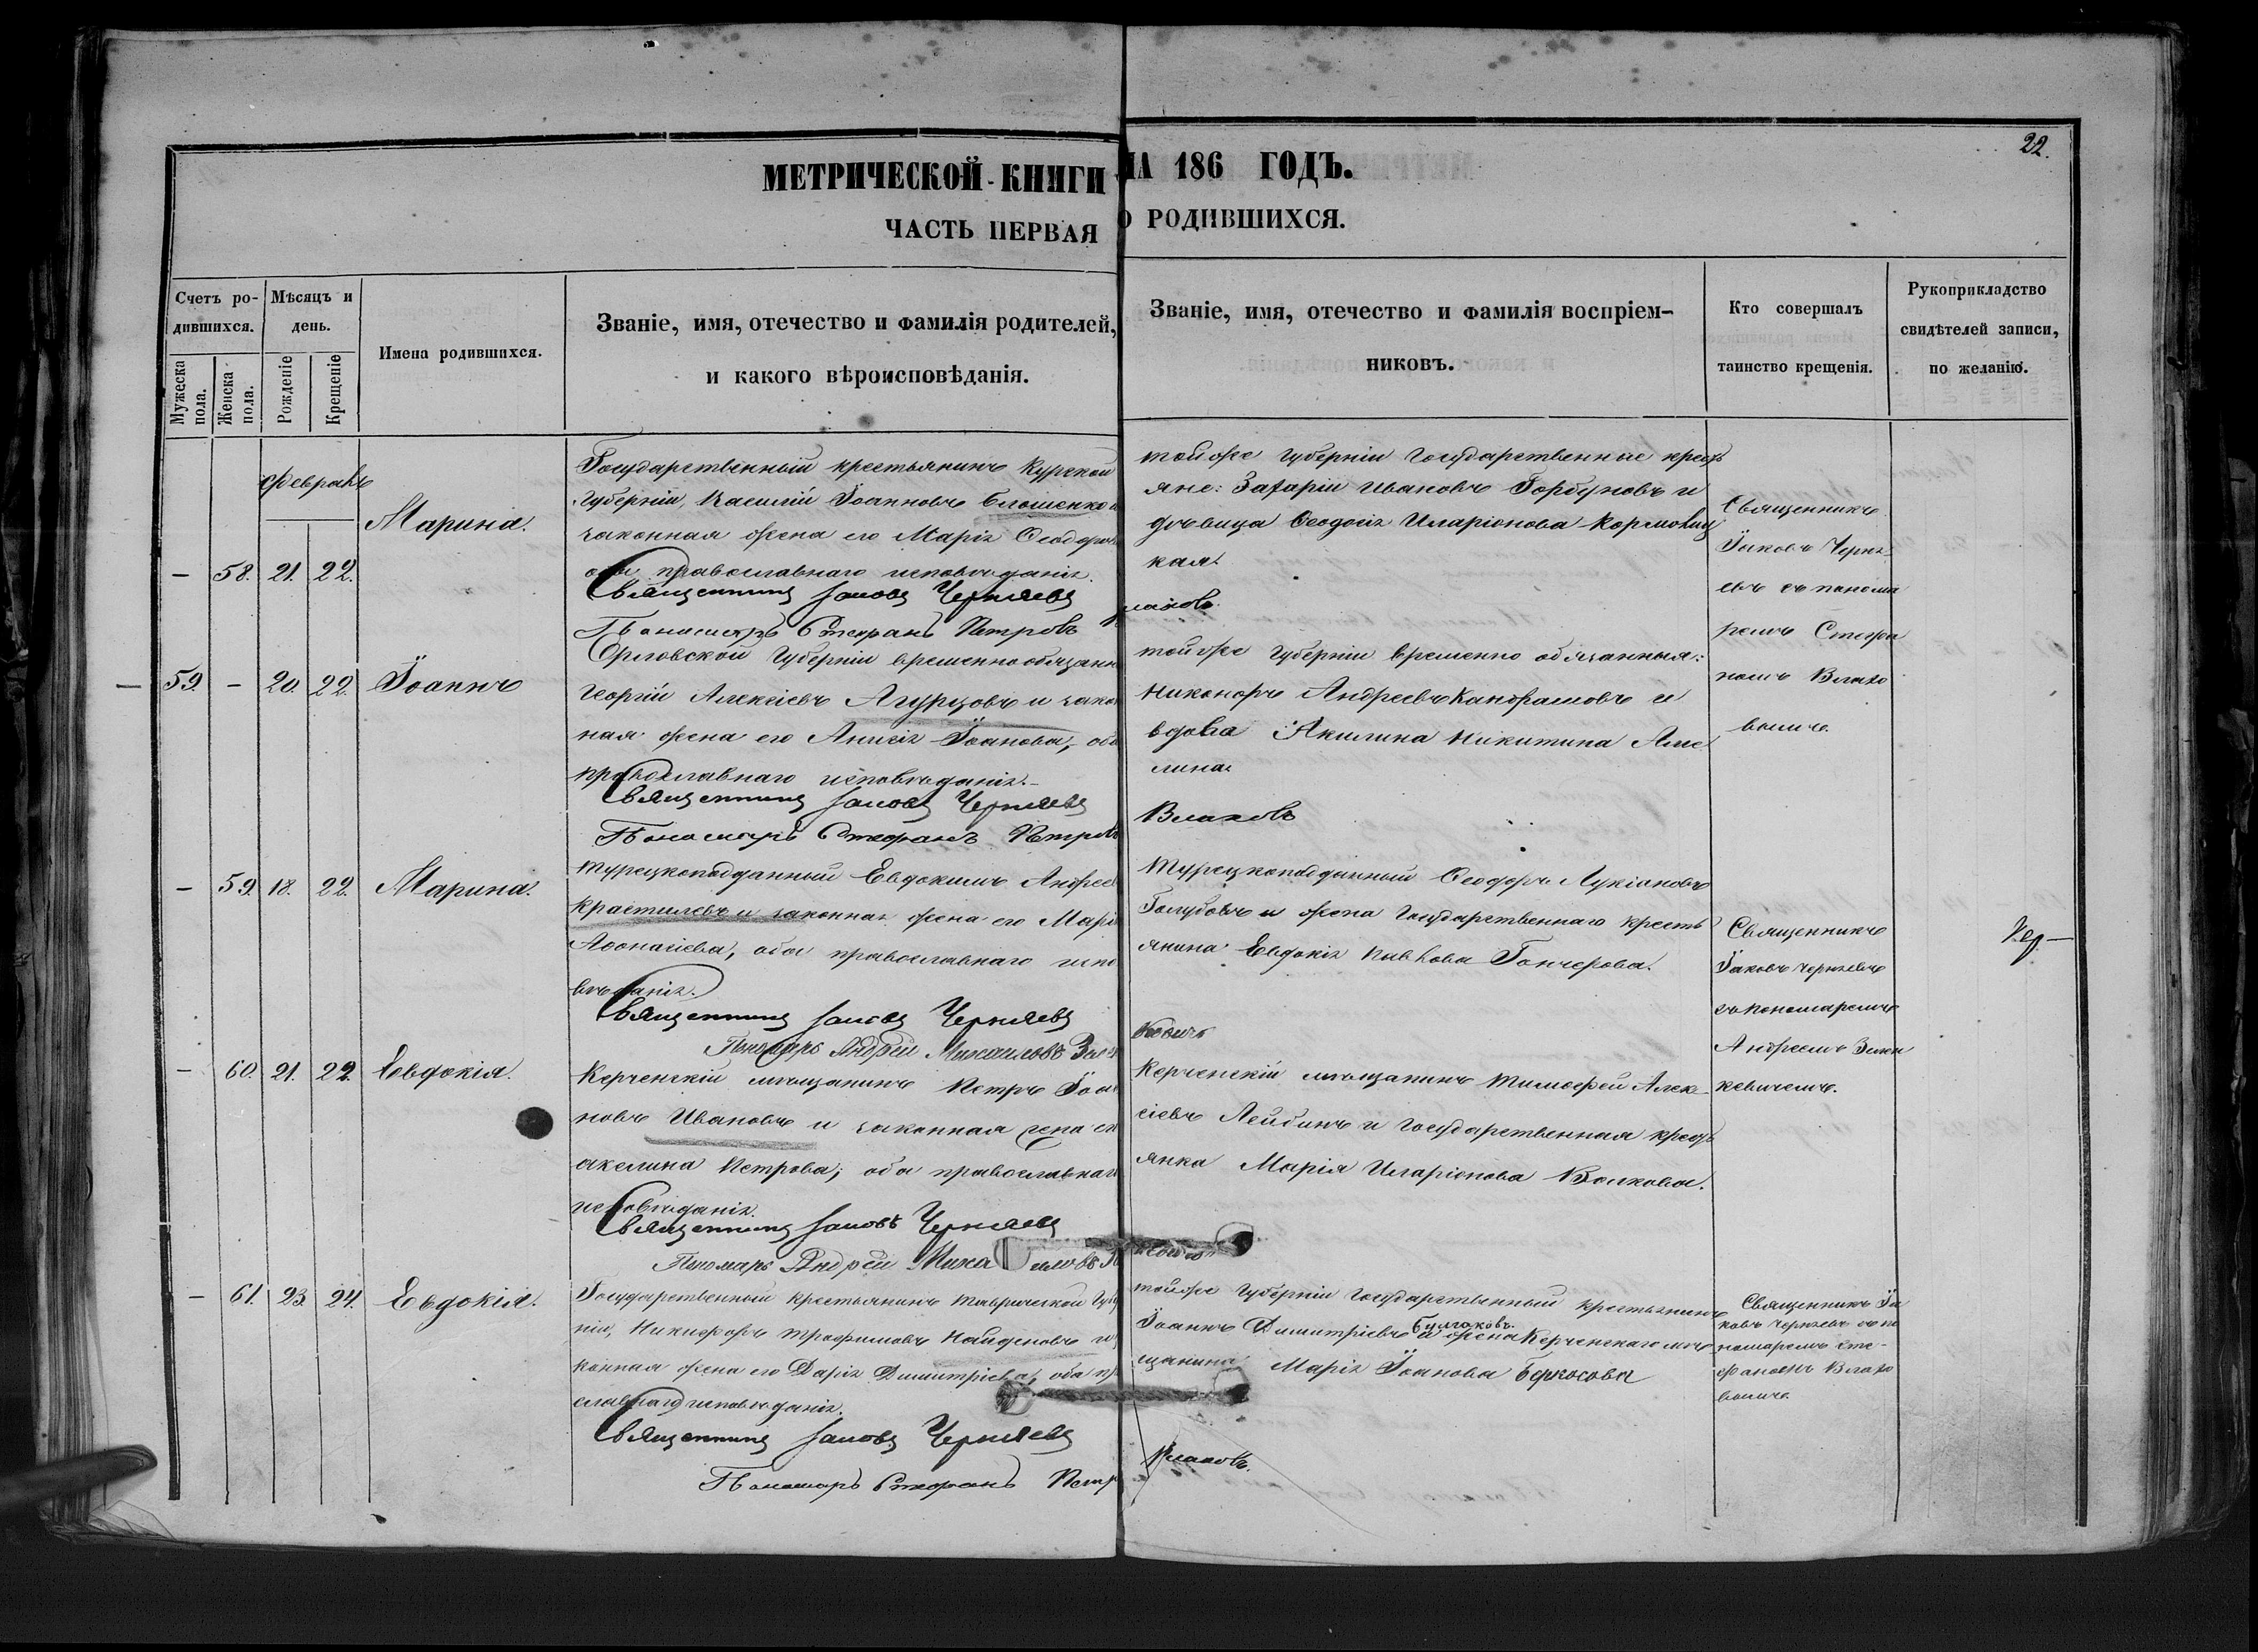 22.
МЕТРИЧЕСКОЙ КНИГИ НА 186 ГОДЪ.
ЧАСТЬ ПЕРВАЯ О РОДИВШИХСЯ.
Счетъ ро-
дившихся.
Мужеска пола.
Женска пола.
Мѣсяцъ и
день.
Рожденіе
Крещеніе
Имена родившихся.
Званіе, имя, отечество и фамилія родителей,
и какого вѣроисповѣданія.
Званіе, имя, отечество и фамилія воспріем-
никовъ.
Кто совершалъ
таинство крещенія.
Рукоприкладство
свидѣтелей записи,
по желанію.
Февраль
– 58. 21. 22.
Марина.
Государственный крестьянинъ Курской
Губерніи, Василій Іоанновъ Блошенко и
законная жена его Марія Ѳеодоро
оба православнаго исповѣданія.
Священникъ Іаковъ Черняевъ
Пономарь Стефанъ Петровъ
тойже губерніи государственные крест
яне: Захарій Ивановъ Горбуновъ и
дѣвица Ѳеодосія Иларіонова
кая.
Влаховъ
Священникъ
Іаковъ Черня
евъ съ понома
ремъ Стефа
номъ Влахо
вымъ.
59. – 20. 22.
Іоаннъ
Орловской Губерніи временнообязанн
Георгій Алексіевъ Агурцовъ и закон
ная жена его Анисія Іоанова, оба
православнаго исповѣданія.
Священникъ Іаковъ Черняевъ
Пономарь Стефанъ Петровъ
тойже губерніи временно обязанныя:
Никоноръ Андреевъ Канфрашовъ и
вдова Акилина Никитина Аме
лина.
Влаховъ
– 59. 18. 22.
Марина.
Турецкоподданный Евдокимъ Андрее
Крастилевъ и законная жена его Марія
Аѳонасіева, оба православнаго испо
вѣданія.
Священникъ Іаковъ Черняевъ
Пономарь Андрей Михаиловъ
Турецкоподданный Ѳеодоръ Лукіановъ
Голубовъ и жена Государственнаго кресть
янина Евдокія Павлова Гончерова.
Священникъ
Іаковъ Черняевъ
съ пономаремъ
Андреемъ
кевичемъ.
– 60. 21. 22.
Евдокія.
Керченскій мѣщанинъ Петръ Іоан
новъ Ивановъ и законная жена его
акелина Петрова; оба православнаго
исповѣданія.
Священникъ Іаковъ Черняевъ
Пономарь Андрей Михаиловъ
Керченскій мѣщанинъ Тимофей Алек
сіевъ Лейбинъ и Государственная крест
янка Марія Иларіонова Волкова.
– 61. 23. 24.
Евдокія.
Государственный крестьянинъ Таврической Губер
ніи, Никифоръ Трофимовъ Найденовъ и за
конная жена его Дарія Димитріева, оба пра
славнаго исповѣданія.
Священникъ Іаковъ Черняевъ
Пономарь Стефанъ Петр
тойже Губерніи Государственный крестьянинъ
Іоаннъ Димитріевъ Булгаковъ и жена Керченскаго мѣ
щанина Марія Іоанова Беркосова
Влаховъ.
Священникъ Іа
ковъ Черняевъ съ по
номаремъ Сте-
фаномъ Влахо
вымъ.